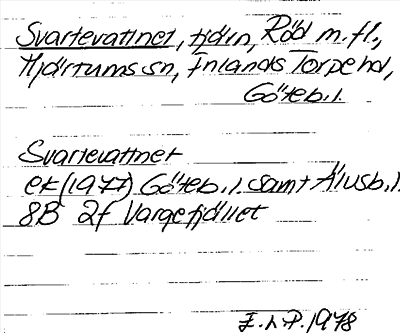 Svartevattnet, tjärn, Röd m.fl.,
Hjärtums sn, Inlands Torpe hd,
Göteb.l.
Svartevattnet
ek (1977) Göteb.l. samt Älvsb.l.
8B 2f Vargefjället
E.h.P. 1978